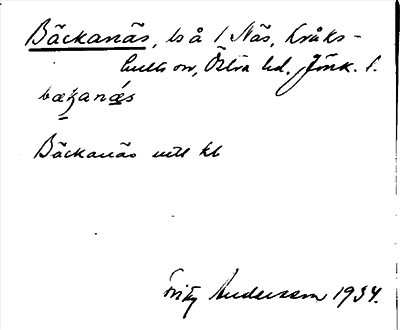 Bäckanäs, ls å 1 Näs, Kråks-
hults sn, Östra hd. Jönk. l.
bækanæs
Bäckanäs utt kb
Fritz Andersson 1934.